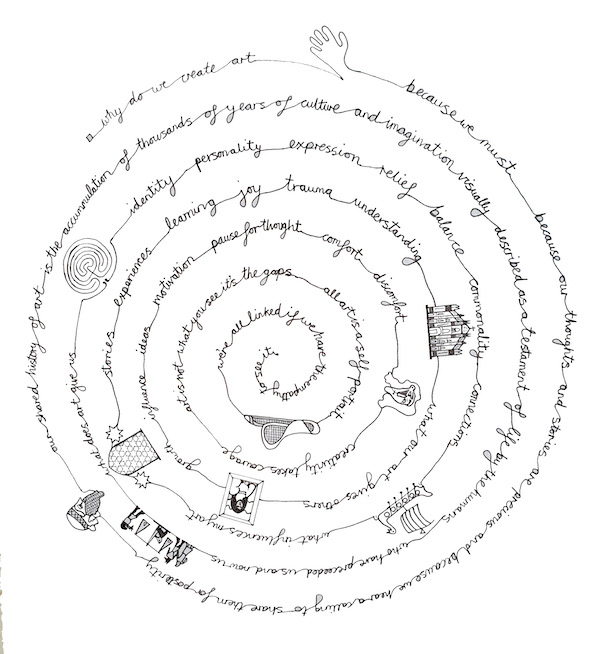 why do we create art
because we must because our thoughts and stories are precious and because we hear a calling to share them fo posterity
our shared history of art is the accumulation of thousands of years of culture and imagination visually described as a testament of life by the humans who have preceeded us and now us
what does art give us
identity personality expression relief balance commonality connections
what influences my art
stories experiences learning joy trauma understanding
what our art gives others
growth influence ideas motivation pause for thought comfort discomfort
creativity takes courage art is not what you see it's the gaps all art is a self portrait
we're all linked if we have the empathy to see it.